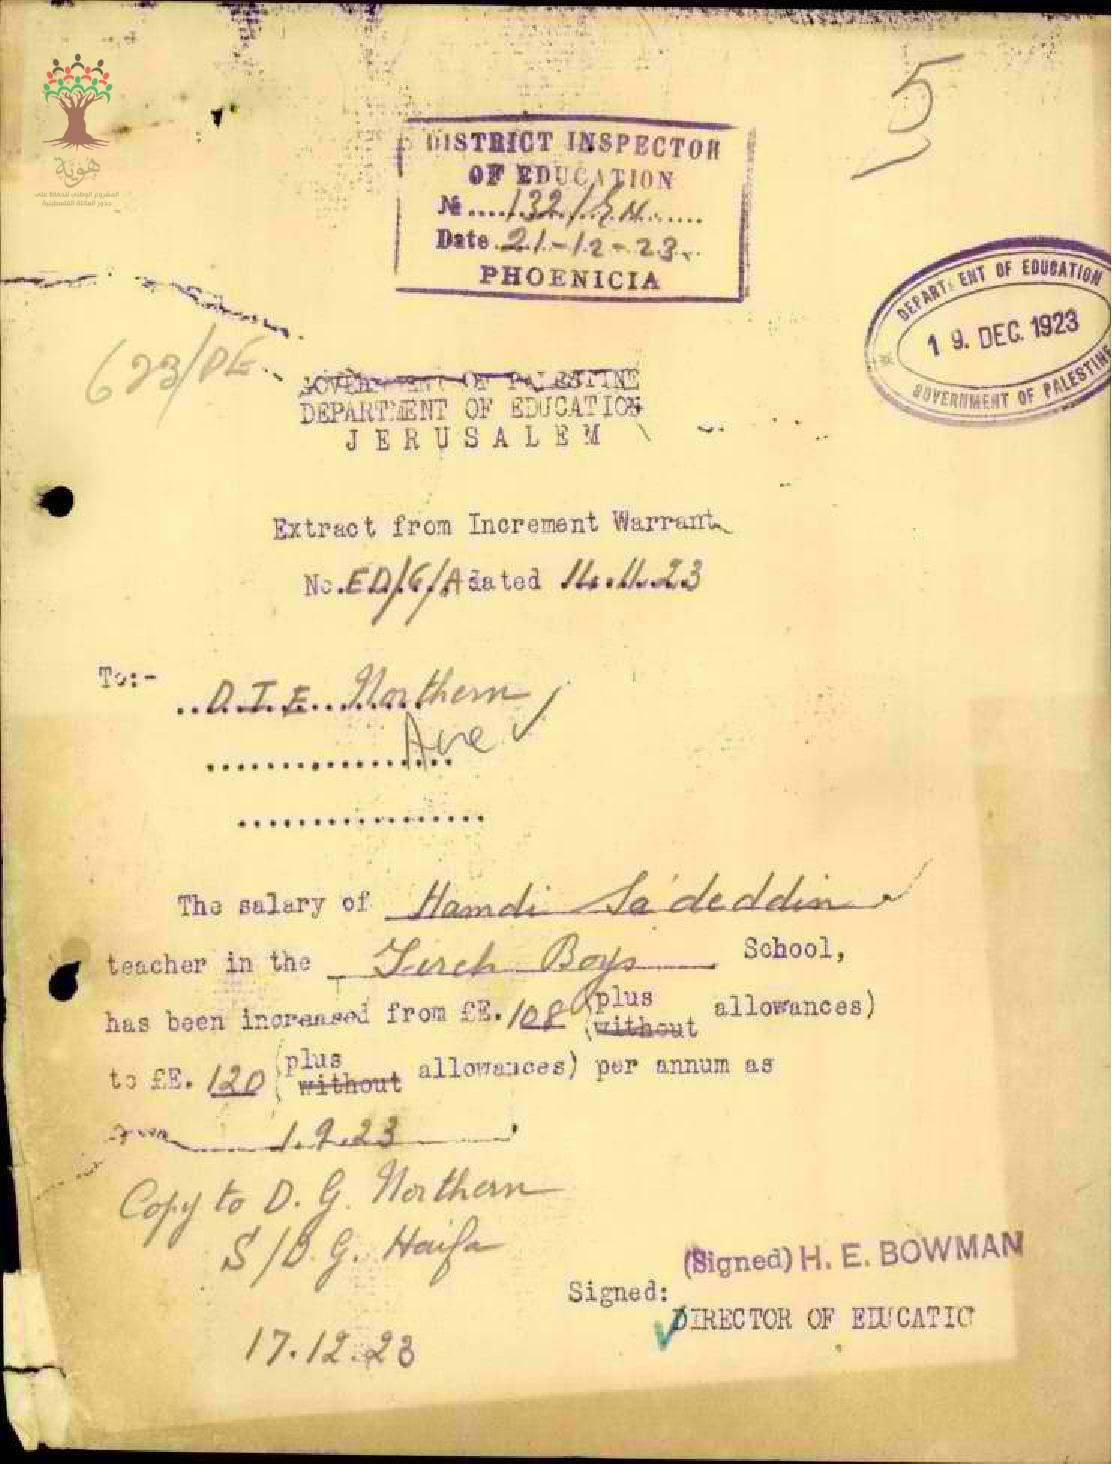 5
هوية
المشروع الوطني للحفاظ على
جذور العائلة الفلسطينية
DISTRICT INSPECTOR
OF EDUCATION
No 132/
Date 21-12-23
PHOENICIA
DEPARTMENT OF EDUCATION
19. DEC. 1923
GOVERNMENT OF PALESTINE
623/DE
GOVERNMENT OF PALESTINE
DEPARTMENT OF EDUCATION
JERUSALEM
Extract from Increment Warrant
No. ED/6/A dated 14.11.23
To:-
D.I.E. Northern
The salary of Hamdi Sa'deddin
teacher in the Tireh Boys School,
has been increased from £E. 108 (plus without allowances)
to £E. 120 (plus without allowances) per annum as
from 1.9.23
Copy to D. G. Northern
S/D.G. Haifa
(Signed) H. E. BOWMAN
Signed:
DIRECTOR OF EDUCATIO
17.12.23